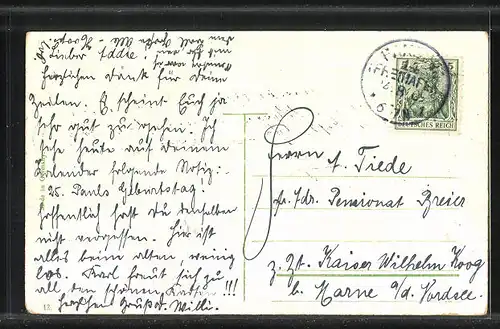 Lieber Edde.
herzlichen Dank für Deine
Zeilen. Es scheint Euch ja
sehr gut zu gehen. Ich
sehe heute auf Deinem
Kalender folgende Notiz:
25. Pauls Geburtstag.
hoffentlich hast Du denselben
nicht vergessen. Hier ist
alles beim alten, wenig
los. Karl freut sich zu
all den schönen Karten!!!
herzlichen Gruß Willi.
DEUTSCHES REICH
Herrn A. Tiede
Pensionat Breier
z. Zt. Kaiser Wilhelm Koog
b. Marne a/d. Nordsee.
12